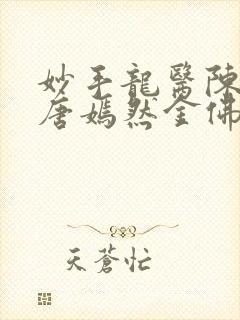 妙手龍醫陳
唐嫣然全佛
天蒼忙